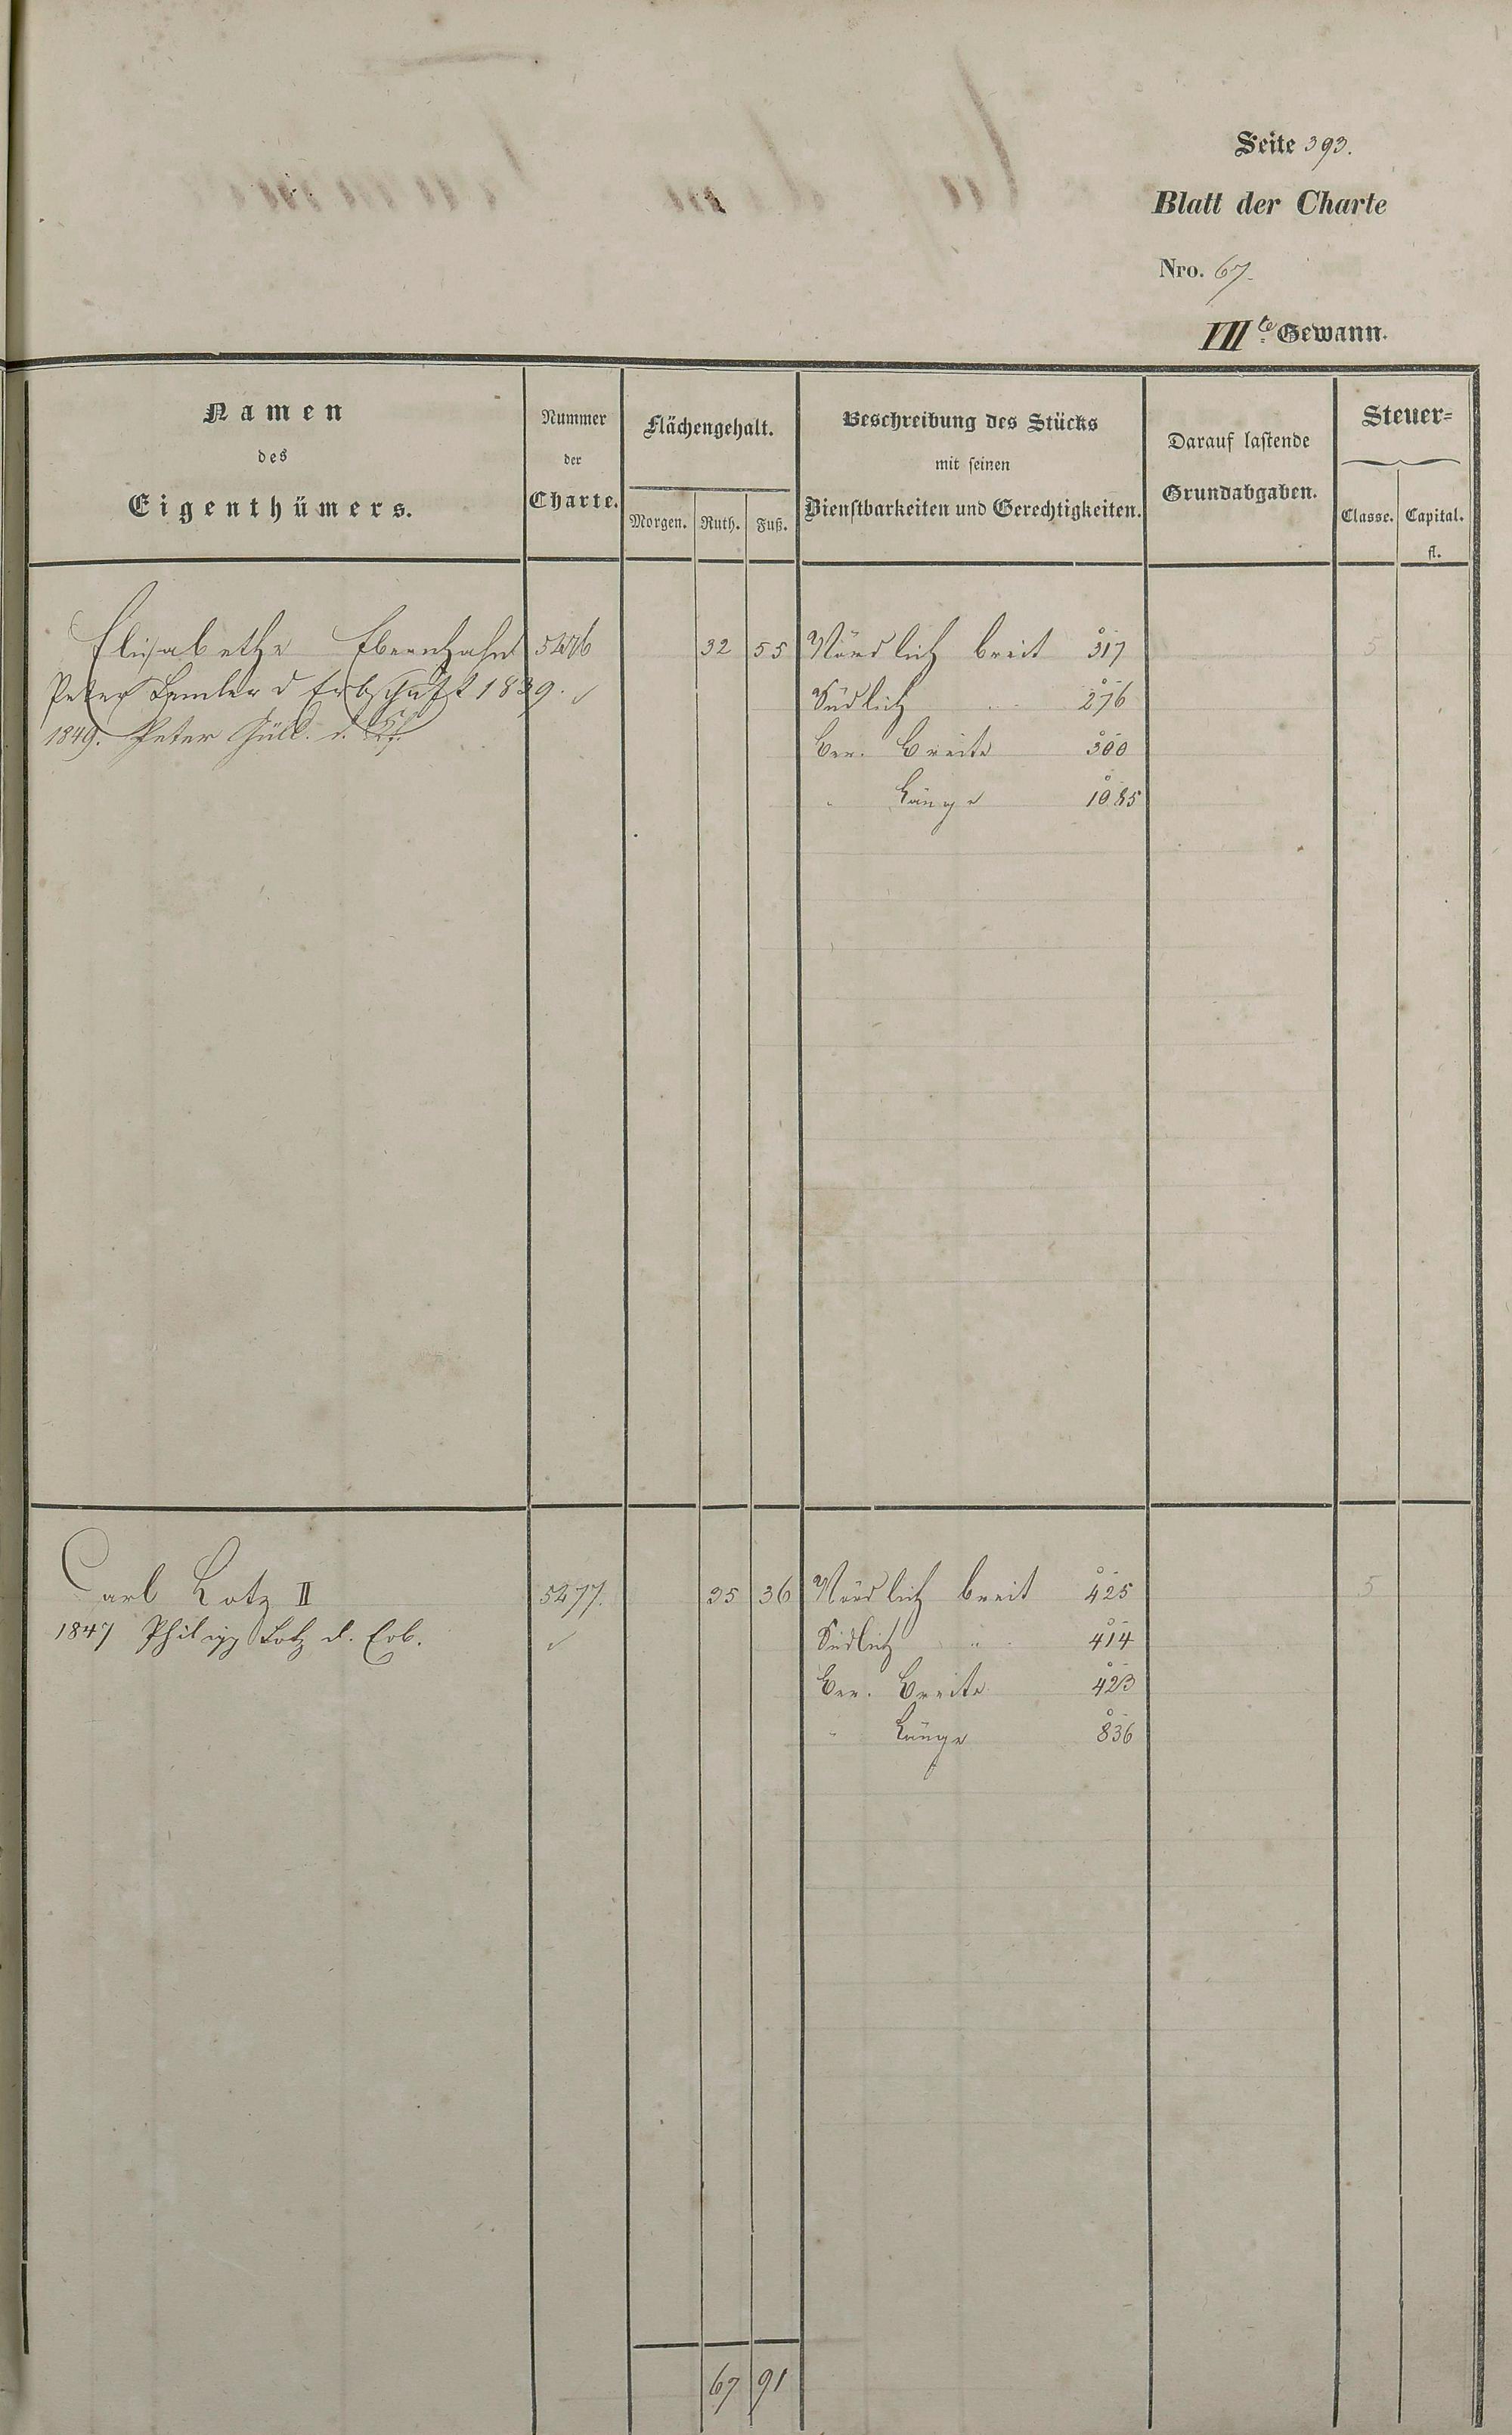 Seite 393.
Blatt der Charte
Nro. 67.
VII te Gewann.
Namen
des
Eigenthümers.
Nummer
der
Charte.
Flächengehalt.
Morgen. Ruth. Fuß.
Beschreibung des Stücks
mit seinen
Dienstbarkeiten und Gerechtigkeiten.
Darauf lastende
Grundabgaben.
Steuer=
Classe. Capital.
fl.
Elisabetha 5476 32 55 Nördlich breit 317 5
Peter d Erbschaft 1839. Südlich " 276
1849. Peter Güll. d. Kf. Ber. Breite 300
" Länge 1085
Carl Lotz II 5477. 35 36 Nördlich breit 425 5
1847 Philipp Lotz d. Erb. Südlich " 414
Ber. Breite 423
" Länge 836
67 91